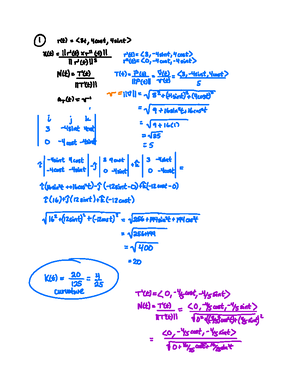 ① r(t) = <3t, 4cost, 4sint>
K(t) = ||r'(t) × r''(t)|| / ||r'(t)||³
r'(t) = <3, -4sint, 4cost>
r''(t) = <0, -4cost, -4sint>
N(t) = T'(t) / ||T'(t)||
T(t) = r'(t) / ||r'(t)|| = <3, -4sint, 4cost> / 5
= √3²+(-4sint)²+(4cost)²
i j k
3 -4sint 4cost
0 -4cost -4sint
= √9+16sin²t+16cos²t
= √9+16(1)
= √25
= 5
î |-4sint 4cost / -4cost -4sint| - ĵ |3 4cost / 0 -4sint| + k̂ |3 -4sint / 0 -4cost| =
î(16sin²t+16cos²t) - ĵ(-12sint-0) + k̂(-12cost-0)
î(16) + ĵ(12sint) + k̂(-12cost)
√16²+(12sint)²+(-12cost)² = √256+144sin²t+144cos²t
= √256+144
= √400
= 20
K(t) = 20/125 = 4/25
curvature
T'(t) = <0, -4/5cost, -4/5sint>
N(t) = T'(t) / ||T'(t)|| = <0, -4/5cost, -4/5sint> / √0²+(-4/5cost)²+(-4/5sint)²
= <0, -4/5cost, -4/5sint> / √0+16/25cos²t+16/25sin²t